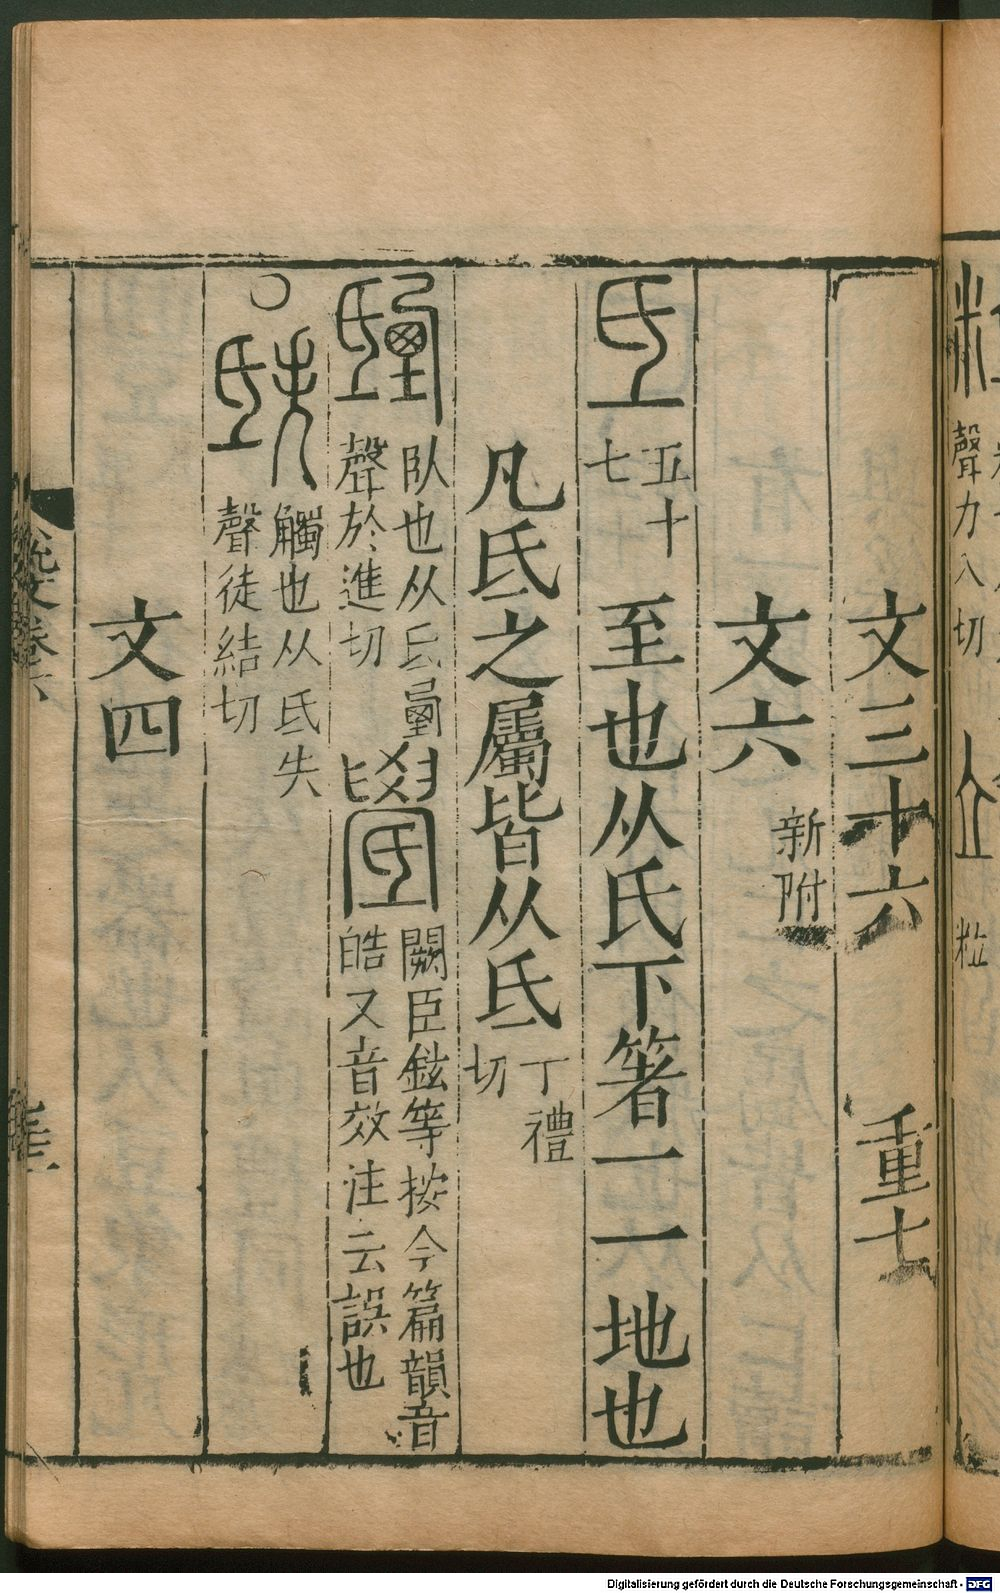 聲力入切 粒
文三十六 重七
文六 新附
氐 五十七 至也从氏下箸一一地也
凡氐之屬皆从氐 丁禮切
臥也从氐垔聲於進切 闕臣鉉等按今篇韻音皓又音效注云誤也
○ 觸也从氐失聲徒結切
文四
Digitalisierung gefördert durch die Deutsche Forschungsgemeinschaft - DFG